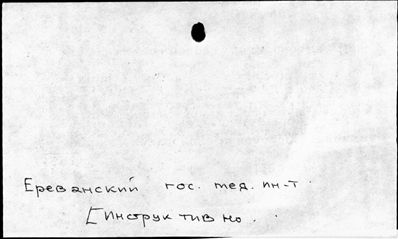 Ереванский гос. мед. ин-т.
[Инструктивно..